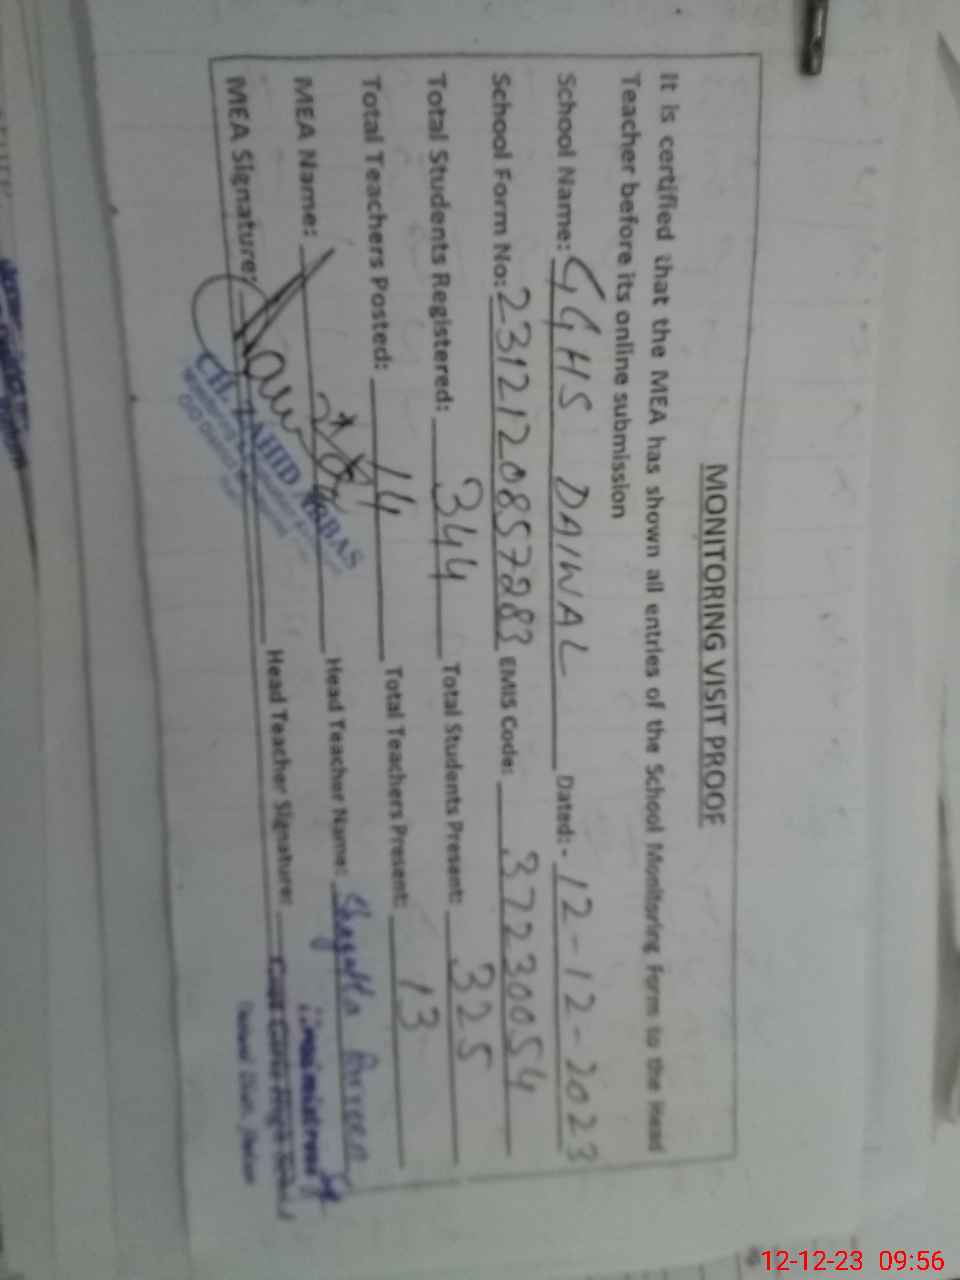 MONITORING VISIT PROOF
It is certified that the MEA has shown all entries of the School Monitoring Form to the Head
Teacher before its online submission
School Name: GGHS DAIWAL Dated:- 12-12-2023
School Form No: 2312120857283 EMIS Code: 37230054
Total Students Registered: 344 Total Students Present: 325
Total Teachers Posted: 14 Total Teachers Present: 13
MEA Name: Head Teacher Name:
MEA Signature: Head Teacher Signature:
CH. ZAHID ABBAS
12-12-23 09:56